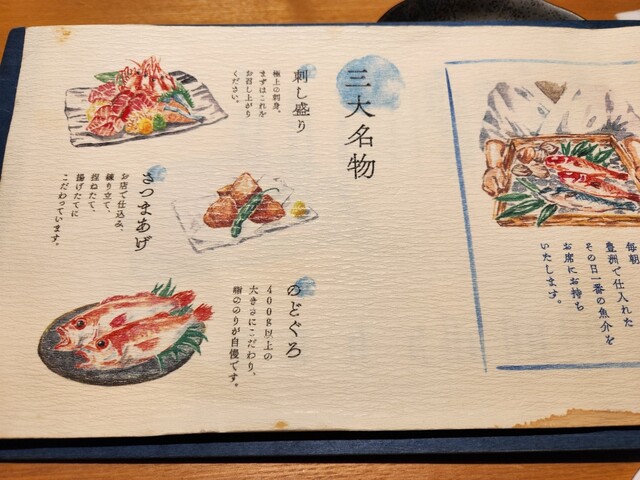 毎朝
豊洲で仕入れた
その日一番の魚介を
お席にお持ち
いたします。
三大名物
刺し盛り
極上の刺身、
まずはこれを
お召し上がり
ください。
さつまあげ
お店で仕込み、
練り立て、
捏ねたて、
揚げたてに
こだわっています。
のどぐろ
400g以上の
大きさにこだわり、
脂ののりが自慢です。